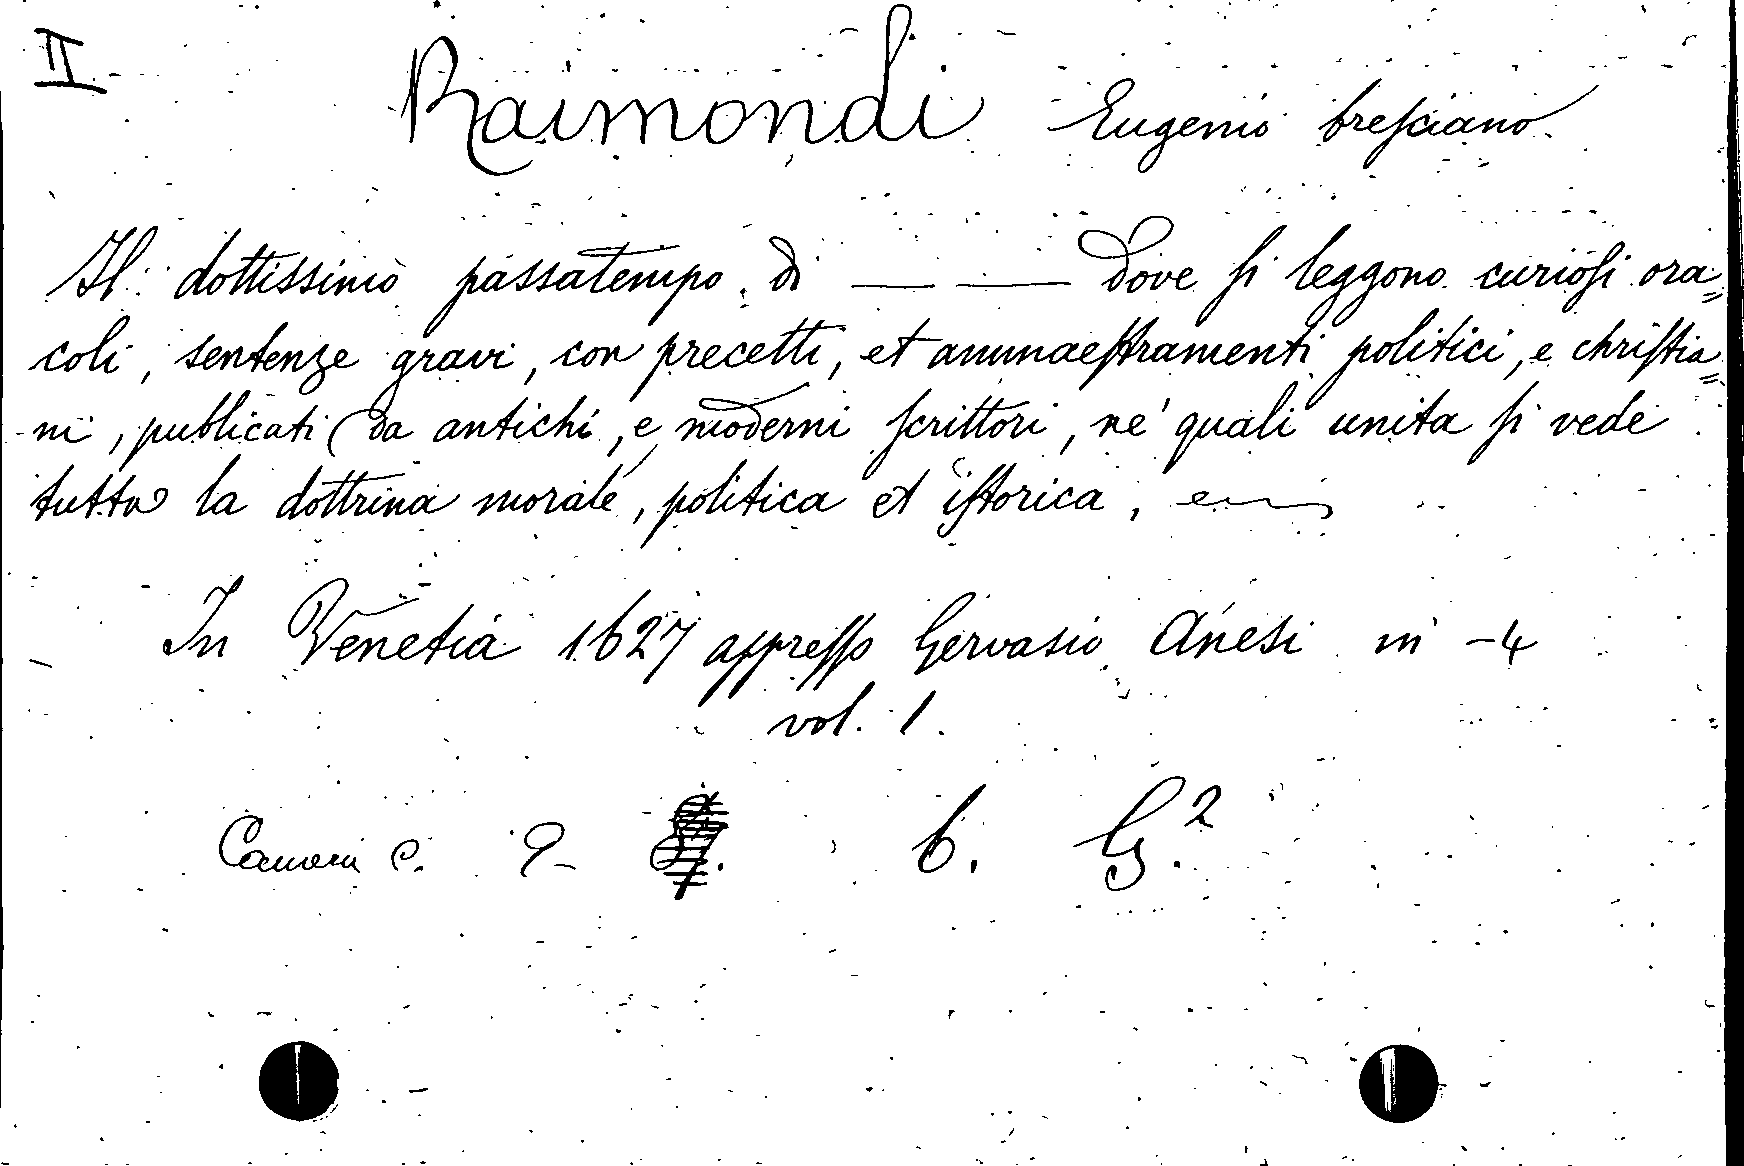 II
Raimondi Eugenio bresciano.
Il dottissimo passatempo di — — Dove si leggono curiosi ora=
coli, sentenze gravi, con precetti, et ammaestramenti politici, e christia=
ni, publicati da antichi, e moderni scrittori, ne' quali unita si vede
tutta la dottrina morale, politica et istorica,
In Venetia 1627 appresso Gervasio Anesi in -4
vol. 1.
Camera C. 9- b. G.²